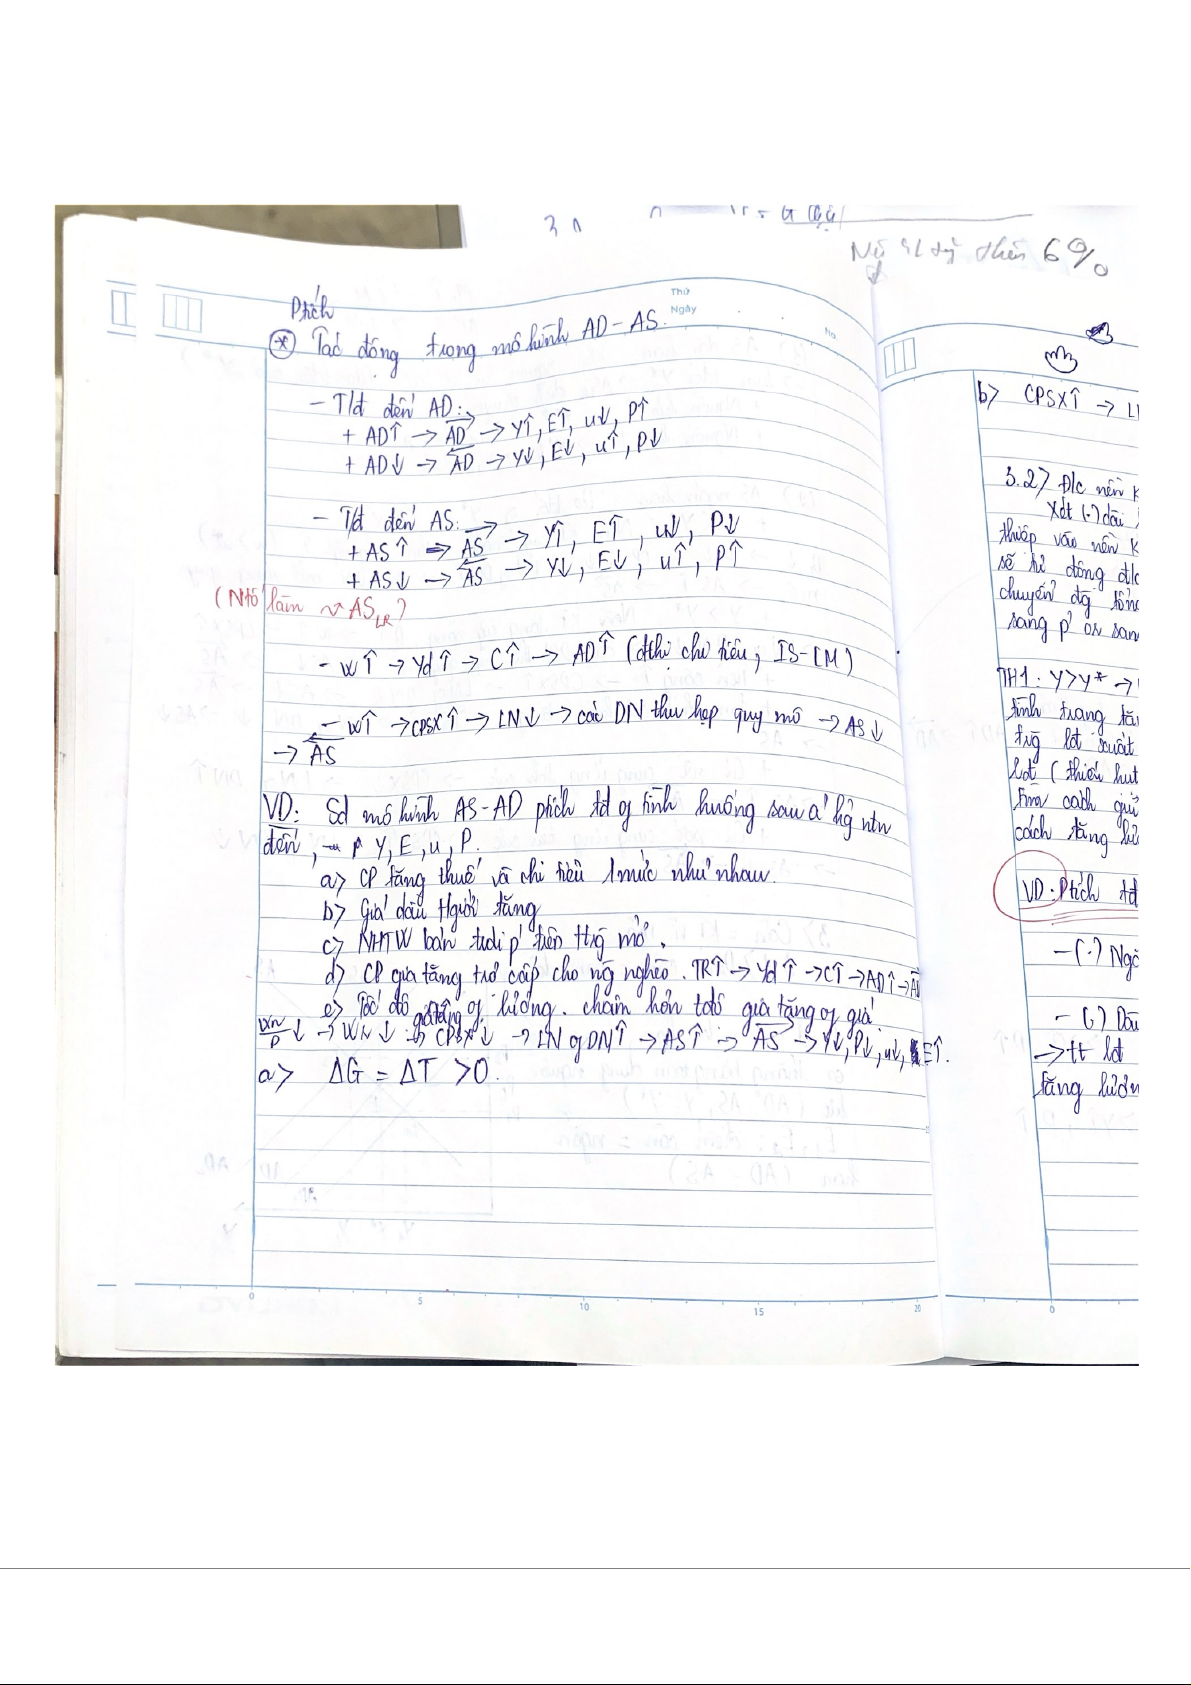 Nợ
6%
Thứ
Ngày
No
Ptích
* Tác động trong mô hình AD-AS.
- T/đ đến AD:
+ AD↑ → AD → Y↑, E↑, u↓, P↑
+ AD↓ → AD → Y↓, E↓, u↑, P↓
- T/đ đến AS:
+ AS↑ → AS → Y↑, E↑, u↓, P↓
+ AS↓ → AS → Y↓, E↓, u↑, P↑
(Ntố làm ~ AS LR?)
- W↑ → Yd↑ → C↑ → AD↑ (đthị chi tiêu, IS-LM)
- W↑ → CPSX↑ → LN↓ → các DN thu hẹp quy mô → AS↓
→ AS
VD: Sd mô hình AS-AD ptích tđ of tình huống sau a' hg ntn
đến, Y, E, u, P.
a> CP tăng thuế và chi tiêu 1 mức như nhau.
b> Giá dầu tgiới tăng
c> NHTW bán trái p' trên ttrg mở.
d> CP gia tăng trợ cấp cho ng nghèo. TR↑ → Yd↑ → C↑ → AD↑ → A
e> Tốc độ gia tăng of lương. chậm hơn tđộ gia tăng of giá
Wn/P ↓ → Wn↓ → CPSX↓ → LN of DN↑ → AS↑ → AS → Y↓, P↓, u↓, E↑.
a> ΔG = ΔT > 0.
b> CPSX↑ → L
3.2> Đ/c nền k
Xđt (.) dài
thiệp vào nền k
sẽ tự động đ/c
chuyển
sang p' as san
TH1: Y>Y* →
tình trạng tă
trg lđ xuất
lđ (thiếu hụt
tìm cách giữ
cách tăng lư
VD: Ptích tđ
- (.) Ngă
- (.) Dà
→ tt lđ
tăng lươn
0 5 10 15 20
0